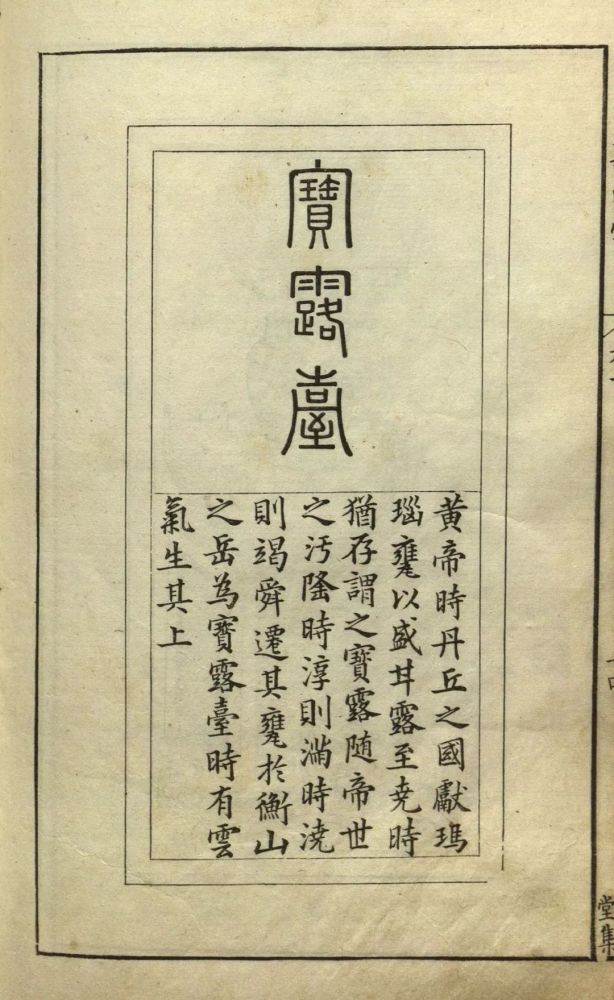 寶露臺
黄帝時丹丘之國獻瑪
瑙甕以盛甘露至尭時
猶存謂之寶露随帝世
之汚隆時淳則滿時澆
則竭舜遷其甕於衡山
之岳為寳露臺時有雲
氣生其上
堂集